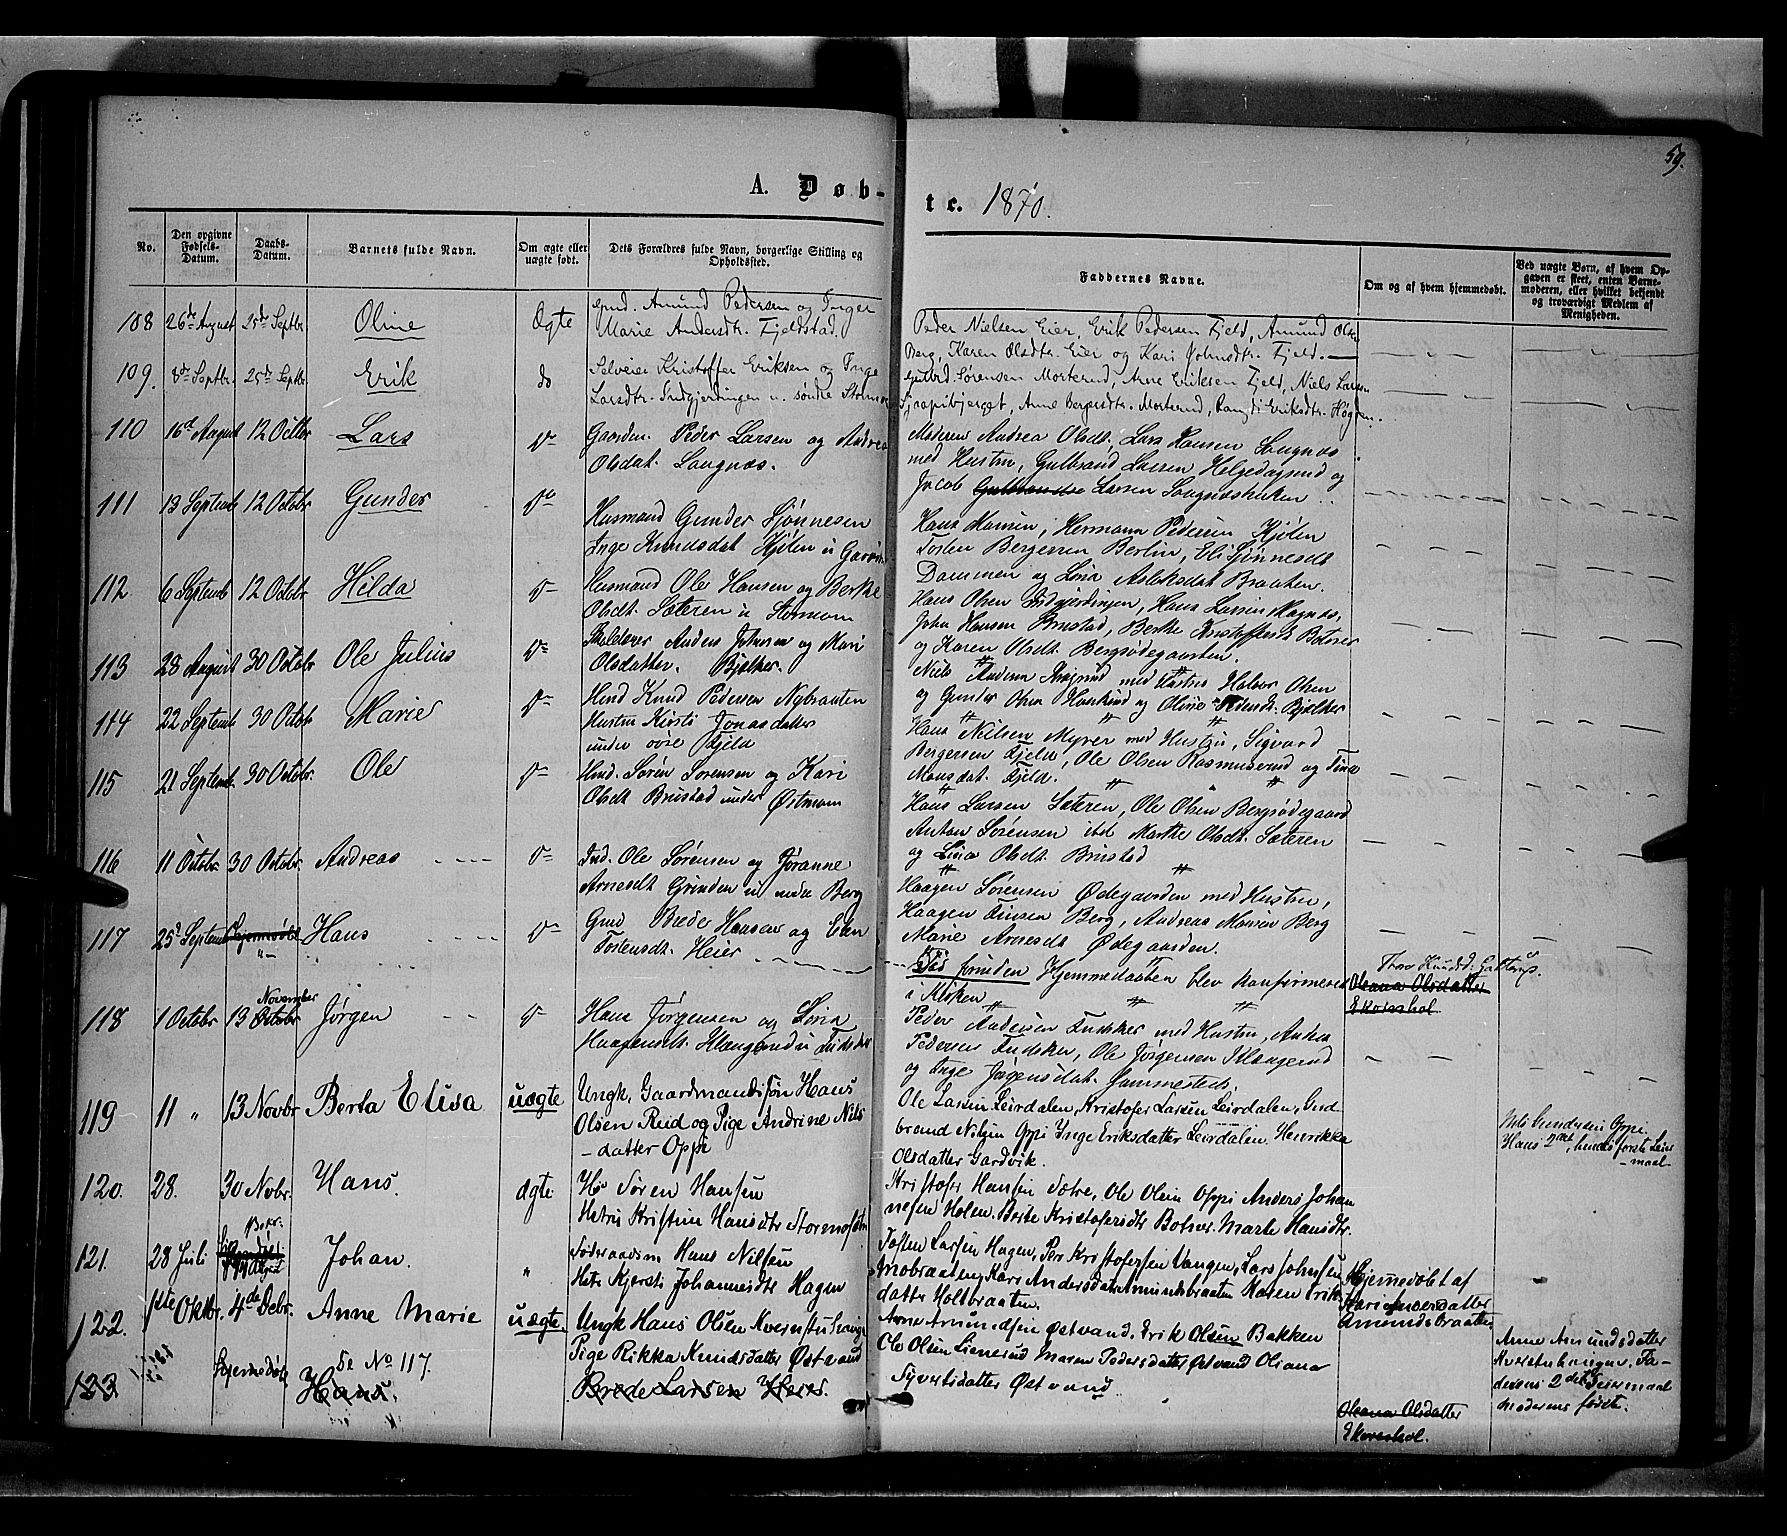 59.
A. Døb-
te. 1870.
No.
Den opgivne Fødsels-Datum.
Daabs-Datum.
Barnets fulde Navn.
Om ægte eller uægte født.
Dets Forældres fulde Navn, borgerlige Stilling og Opholdssted.
Faddernes Navne.
Om og af hvem hjemmedøbt.
Ved uægte Børn, af hvem Opgaven er skeet, enten Barnemoderen, eller hvilket bekjendt og troværdigt Medlem af Menigheden.
108 26de August 25de Septbr. Oline Ægte Gmd. Amund Pedersen og Inger
Marie Andersdtr. Fjeldstad.
Peder Nielsen Eier, Erik Pedersen Fjeld, Amund Olsen
Berg, Karen Olsdtr. Eier og Kari Johnsdtr. Fjeld.
109. 8de Septbr. 25de Septbr. Erik do Selveier Kristoffer Eriksen og Inge
Larsdtr. Indgjerdingen u. søndre
Gulbrd. Sørensen Morterud, Arne Eriksen Fjeld, Niels Larsen
Anne Bergersdtr. Morterud, Randi Eriksdtr.
110 16de August 12 Octbr Lars Do Gaardm. Peder Larsen og Andrea
Olsdat. Sougnæs.
Moderen Andrea Olsdt. Lars Hansen Sougnæs
med Hustru, Gulbrand Larsen Helgedagsrud og
Jacob Larsen
111 13 Septemb 12 Octobr Gunder Do Husmand Gunder Sjønnesen
Inge Knudsdat Kjølen u
Hans Hansen, Hermann Pedersen Kjølen
Tosten Bergersen Berlin, Eli Sjønnesdt
Dammen og Lina Aslaksdat Braaten.
112 6 Septemb 12 Octobr Hilda Do Husmand Ole Hansen og Berthe
Olsdt. Sæteren u Stormoen
Hans Olsen Indgjerdingen, Hans Larsen
John Hansen Brustad, Berthe Kristoffersdt
og Karen Olsdt. Bergsødegaarden.
113 28 August 30 Octobr Ole Julius Do Anders Johnsen og Mari
Olsdatter. Bjølker.
Niels Andersen med Hustru Halvor Olsen
og Gunder Olsen og Oline Bjølker
114 22 Septemb 30 Octobr Marie Do Hmd Knud Pedersen Nybraaten
Hustru Kirsti Jonasdatter
under øvre Fjeld
Hans Nielsen Myrer med Hustru, Sigvard
Bergersen Fjeld, Ole Olsen Rasmusrud og Tina
Monsdat. Fjeld.
115 21 Septemb. 30 Octobr. Ole Do Hmd. Søren Sørensen og Kari
Olsdt Brustad under Østmoen
Hans Larsen Sæteren, Ole Olsen Bergsødegaard
Anton Sørensen ibd Marthe Olsdt. Sæteren
og Lina Olsdt. Brustad
116 11 Octobr. 30 Octobr Andreas Do Ind. Ole Sørensen og Jøranne
Arnesdt Grinden u nedre Berg
Haagen Sørensen Ødegaarden med Hustru,
Haagen Finsen Berg, Andreas Berg
Marie Arnesdt Ødegaarden.
117 25de Septemb Hjemmedøbt Hans Do Gmd Brede Hansen og Elen
Tostensdt. Heier
Hjemmedaaben blev konfirmeret
i Kirken
Olsdatter
118 1 Octobr 13 Octobr November Jørgen Do Hans Jørgensen og Lovise
Haagensdt. Klægerud u
Peder Andersen med Hustru, Andrea
Pedersen Ole Jørgensen Klægerud
og Inge Jørgensdat. Gammelsted.
119 11 " 13 Novbr Berta Elisa uægte Ungk. Gaardmandssøn Hans
Olsen Rud og Pige Andrine Nils
-datter Oppi
Ole Larsen Leirdalen, Kristofer Larsen Leirdalen, Gud-
brand Nilsen Oppi Inge Eriksdatter Leirdalen, Henrikka
Olsdatter Gardvik.
Nils Gundersen Oppi
Hans 2det, hendes første Leier
-maal
120. 28. 30 Novbr. Hans. ægte Hs Søren Hansen
Hstru Kristine Hansdtr
Kristofer Hansen Sætre, Ole Olsen Oppi Anders Johan
nesen Holen. Berte Kristofersdtr Marte Hansdtr.
121. 28 Juli Johan. " Føderaadsm Hans Nilsen
Hstr Kjersti Johannesdtr Hagen
Tosten Larsen Hagen, Per Kristofersen Vangen, Lars Johnsen
Kari Andersdatter Amundsbraaten Karen Eriks
datter Holtbraaten.
Hjemmedøbt af
Kari Andersdatter
Amundsbraaten
122. 1ste Oktbr. 4de Decbr. Anne Marie uægte Ungk Hans Olsen Kvernstuhaugen
Pige Rikka Knudsdatter Østvand
Arne Amundsen Østvand, Erik Olsen Bakken
Ole Olsen Lienerud Maren Pedersdatter Østvand Oliana
Syvertsdatter Østvand
Anne Amundsdatter
Kvernstuhaugen, Fa-
derens 2det Leiermaal
moderens første.
123 Hjemmedøbt Se No 117. Hans. Brede Larsen Heier.
Oleana Olsdatter